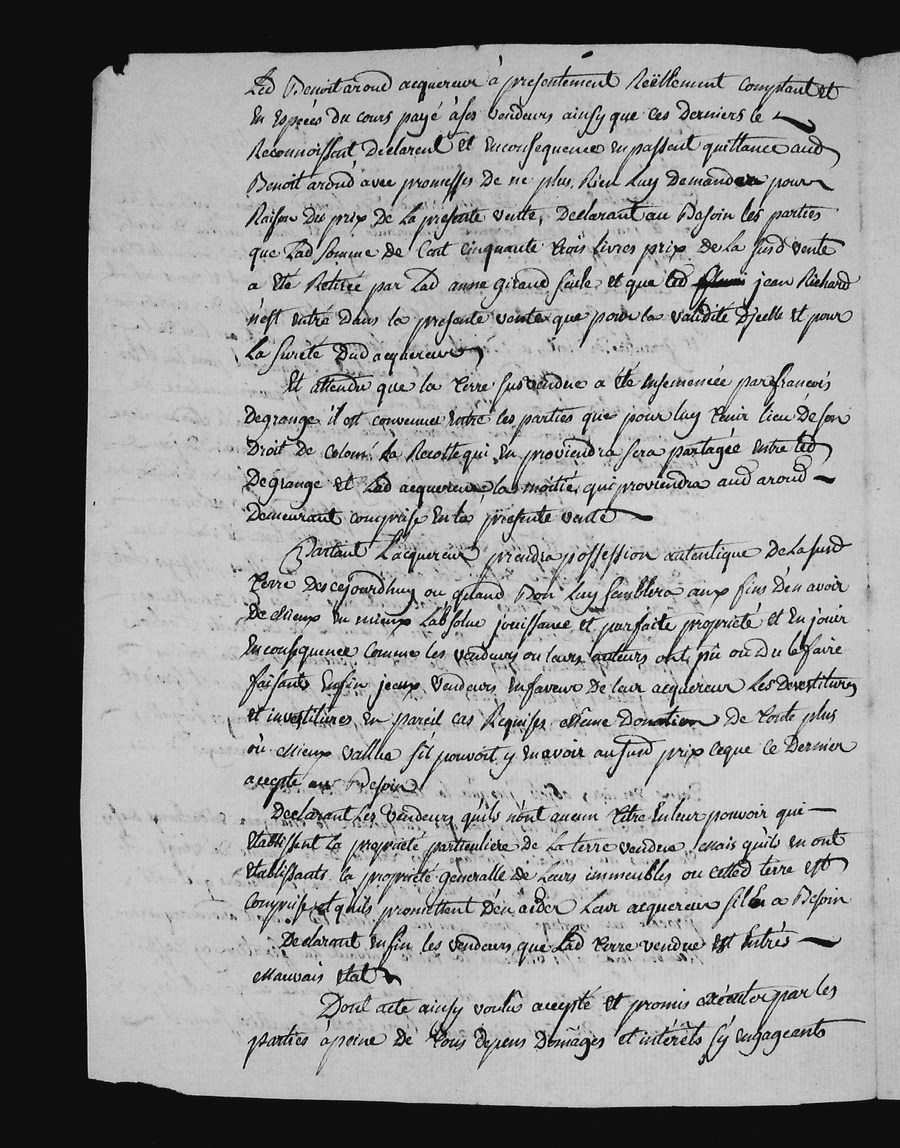 Led Benoit aroud acquereur à presentement Reëllement comptant et
En Espèces du cours payé à ses vendeurs ainsy que ces Derniers le
Reconnoissent Declarent Et Enconsequence En passent quittance aud
Benoit aroud avec promesses De ne plus Rien Luy Demander pour
Raison Du prix de La presente vente, Declarant au Besoin les parties
que Lad Somme de Cent cinquante trois Livres prix de La Susd vente
a Eté Retirée par Lad anne giraud Seule, et que led jean Richard
n'est Entré Dans la presente vente que pour la validité D'jcelle Et pour
La Sureté Dud acquereur
Et attendu que la terre Sus vendue a été Ensemencée par francois
Degrange il est convenu Entre les parties que pour luy tenir lieu De son
Droit de colon, La Recolte qui En proviendra Sera partagée Entre led
Degrange et Led acquereur la moitié qui proviendra aud aroud
Demeurant comprise En la presente vente
Partant L'acquereur prendra possession autentique De La susd
terre Des cejourdhuy ou quand Bon Luy Semblera aux fins D'en avoir
De Mieux En mieux L'absolue jouissance et parfaite propriété et En jouir
En consequence Comme les vendeurs ou leurs auteurs ont pû ou Du le faire
faisants Enfin jceux vendeurs En faveur De leur acquereur Les Devestitures
et investitures En pareil cas Requises Même Donation De toute plus
ou Mieux vallue s'il pouvoit y En avoir au susd prix ce que ce Dernier
accepte au Besoin
Declarant Les Vendeurs qu'ils n'ont aucun titre En leur pouvoir qui
Etablissent La propriété particuliere de La terre vendue, Mais qu'ils En ont
Etablissants la propriété generalle de Leurs immeubles ou cetted terre Est
Comprise, et qu'ils promettent D'en aider Leur acquereur s'il En a Besoin
Declarant Enfin les vendeurs que Lad terre vendue Est En très
Mauvais Etat
Dont acte ainsy voulu accepté Et promis exécuter par les
parties à peine de tous depens Domâges et intérêts s'y Engageants